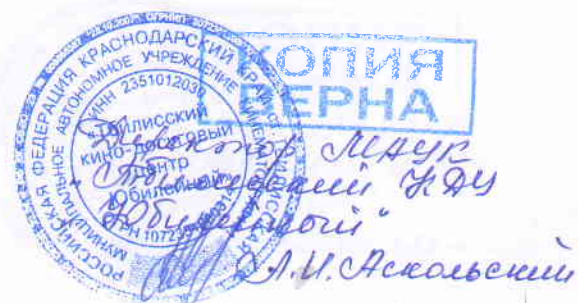 КОПИЯ
ВЕРНА
РОССИЙСКАЯ ФЕДЕРАЦИЯ КРАСНОДАРСКИЙ КРАЙ
МУНИЦИПАЛЬНОЕ АВТОНОМНОЕ УЧРЕЖДЕНИЕ
ИНН 2351012030
Тбилисский
кино-досуговый
центр
Юбилейный
Директор МАУК
"Тбилисский КДЦ
"Юбилейный"
А.И. Аскольский